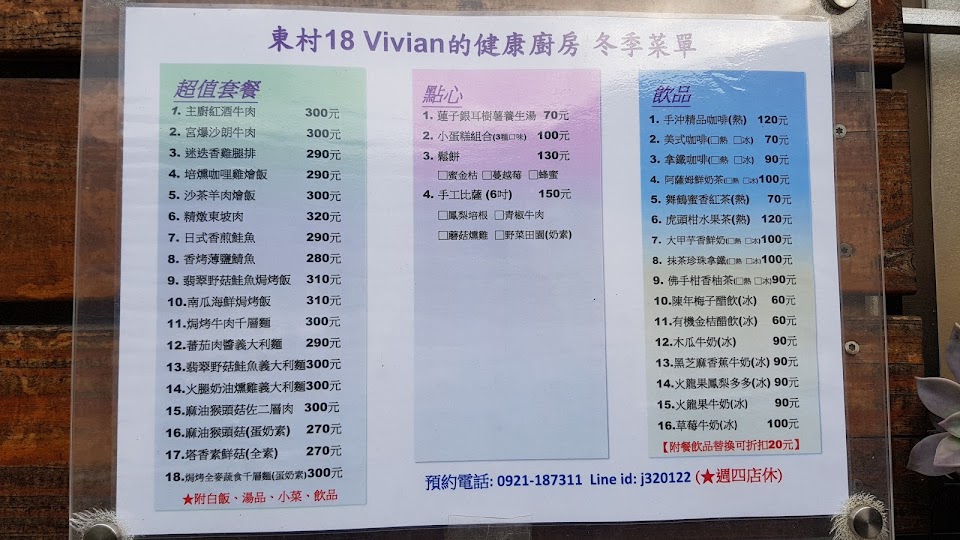 東村18 Vivian的健康廚房 冬季菜單
超值套餐
1. 主廚紅酒牛肉 300元
2. 宮爆沙朗牛肉 300元
3. 迷迭香雞腿排 290元
4. 培燻咖哩雞燴飯 290元
5. 沙茶羊肉燴飯 300元
6. 精燉東坡肉 320元
7. 日式香煎鮭魚 290元
8. 香烤薄鹽鯖魚 280元
9. 翡翠野菇鮭魚焗烤飯 310元
10.南瓜海鮮焗烤飯 310元
11.焗烤牛肉千層麵 300元
12.蕃茄肉醬義大利麵 290元
13.翡翠野菇鮭魚義大利麵300元
14.火腿奶油燻雞義大利麵300元
15.麻油猴頭菇佐二層肉 300元
16.麻油猴頭菇(蛋奶素) 270元
17.塔香素鮮菇(全素) 270元
18.焗烤全麥蔬食千層麵(蛋奶素)300元
★附白飯、湯品、小菜、飲品
點心
1. 蓮子銀耳樹薯養生湯 70元
2. 小蛋糕組合(3種口味) 100元
3. 鬆餅 130元
□蜜金桔 □蔓越莓 □蜂蜜
4. 手工比薩 (6吋) 150元
□鳳梨培根 □青椒牛肉
□蘑菇燻雞 □野菜田園(奶素)
飲品
1. 手沖精品咖啡(熱) 120元
2. 美式咖啡(□熱 □冰) 70元
3. 拿鐵咖啡(□熱 □冰) 90元
4. 阿薩姆鮮奶茶(□熱 □冰)100元
5. 舞鶴蜜香紅茶(熱) 70元
6. 虎頭柑水果茶(熱) 120元
7. 大甲芋香鮮奶(□熱 □冰)100元
8. 抹茶珍珠拿鐵(□熱 □冰)100元
9. 佛手柑香柚茶(□熱 □冰)90元
10.陳年梅子醋飲(冰) 60元
11.有機金桔醋飲(冰) 60元
12.木瓜牛奶(冰) 90元
13.黑芝麻香蕉牛奶(冰) 90元
14.火龍果鳳梨多多(冰) 90元
15.火龍果牛奶(冰) 90元
16.草莓牛奶(冰) 100元
【附餐飲品替換可折扣20元】
預約電話: 0921-187311 Line id: j320122 (★週四店休)